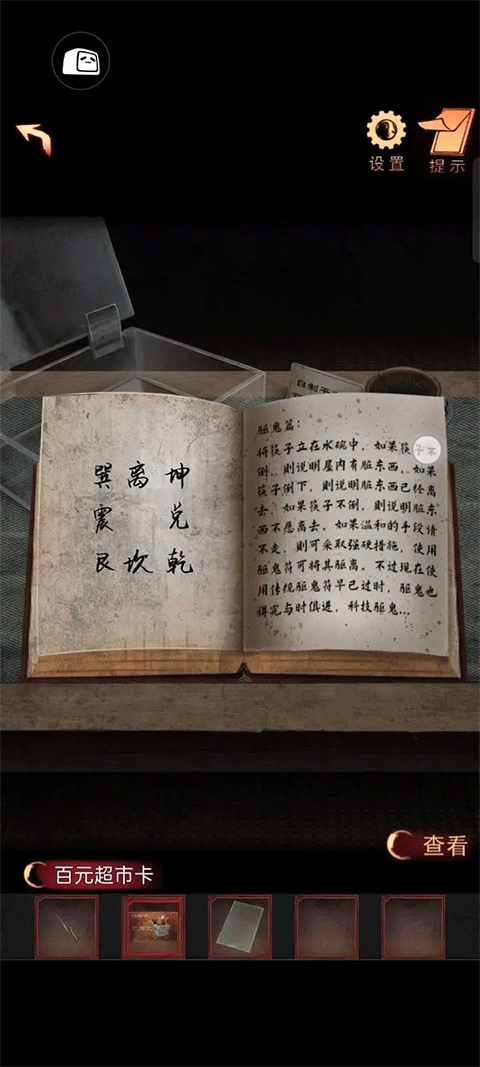 设置
提示
自制平
巽 离 坤
震 兑
艮 坎 乾
驱鬼篇：
将筷子立在水碗中，如果筷子不
倒，则说明屋内有脏东西，如果
筷子倒下，则说明脏东西已经离
去。如果筷子不倒，则说明脏东
西不愿离去。如果温和的手段请
不走，则可采取强硬措施，使用
驱鬼符可将其驱离。不过现在使
用传统驱鬼符早已过时，驱鬼也
得究与时俱进，科技驱鬼...
查看
百元超市卡